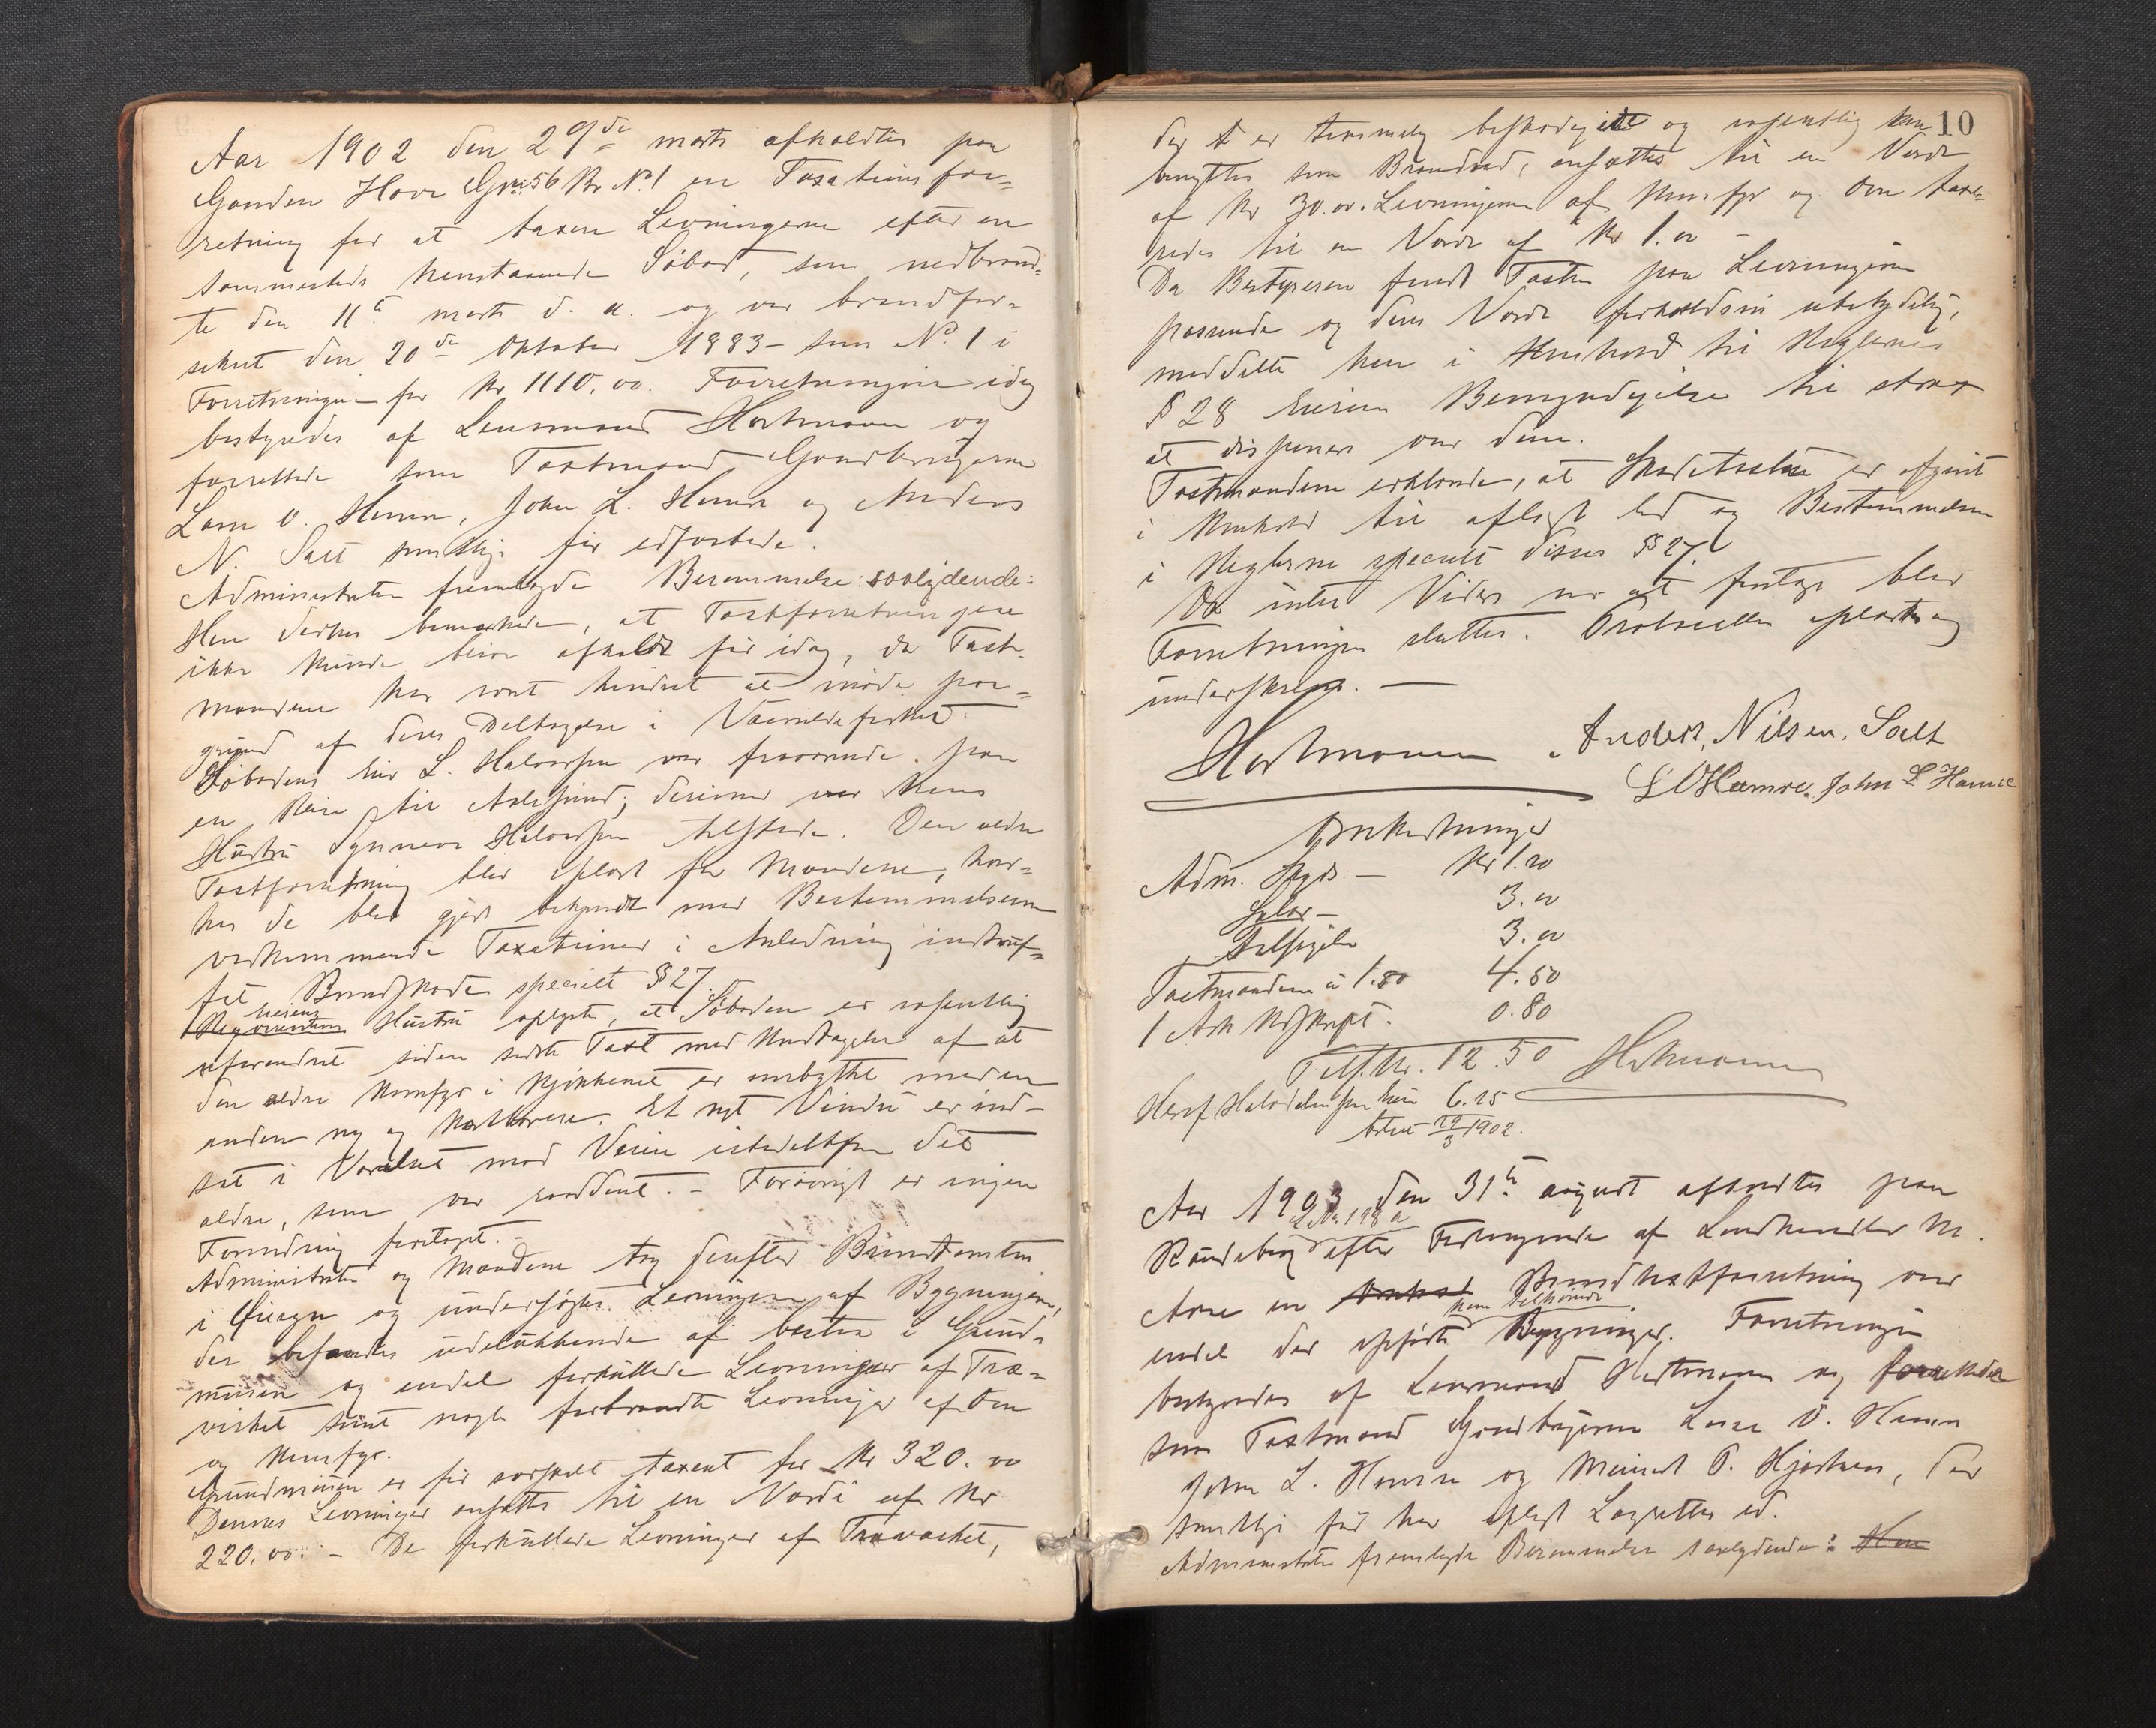 Aar 1902 den 29de marts afholdtes paa
Gaarden Hove Gn: 56 Br No 1 en Taxationsfor-
retning for at taxere Levningerne efter en
sammesteds henstaaende Søbod, som nedbrænd-
te den 11te marts d. a. og var brandfor-
sikret den 20de Oktober 1883 som No. 1 i
Forretningen for Kr 1110,00. Forretningen idag
bestyredes af Lensmand Hartmann og
forrettede som Taxtmænd Gaardbrugerne
Lars O. Hamre, John L. Hamre og Anders
N. Salt samtlige før edfæstede.
Administrator fremlagde Berammelse saalydende:
Han derhos bemærkede, at Taxtforretningen
ikke kunde blive afholdt før idag, da Taxt-
mændene har været hindret at møde paa-
grund af deres Deltagelse i Vaarsildefisket.
Søbodens Eier L. Halvorsen var fraværende paa
en Reise til Aalesund; derimod var hans
Hustru Synneva Halvorsen tilstede. Den ældre
Taxtforretning blev oplæst for Mændene, hvor-
hos de blev gjort bekjendt med Bestemmelserne
vedkommende Taxationer i Anledning indtruf-
fet Brandskade specielt § 27.
Eierens
Rekvirentens Hustru oplyste, at Søboden er væsentlig
uforandret siden sidste Taxt med Undtagelse af at
den ældre Komfyr i Kjøkkenet er ombyttet med en
anden ny og kostbarere. Et nyt Vindu er ind-
sat i Værelset mod Veien istedetfor det
ældre, som var raaddent. - Forøvrigt er ingen
Forandring foretaget. -
Administrator og Mændene tog derefter Brandtomten
i Øiesyn og undersøgte Levningerne af Bygningen,
der befandtes udelukkende af bestaa i Grund-
muren og endel forkullede Levninger af Træ-
virket samt nogle forbrændte Levninger af Ovn
og Komfyr.
Grundmuren er før særskilt taxeret for Kr 320.00
Dennes Levninger ansattes til en Værdi af Kr
220,00. - De forkullede Levninger af Træværket,
10
der er temmelig beskadiget og væsentlig kun
benyttes som Brændved, ansattes til en Værdi
af Kr 30.00. Levningerne af Komfyr og Ovn taxe-
redes til en Værdi af Kr 1.00 -
Da Bestyreren fandt Taxten paa Levningerne
passende og deres Værdi forholdsvis ubetydelig,
meddelte han i Henhold til Reglernes
§ 28 Eieren Bemyndigelse til strax
at disponere over dem.
Taxtmændene erklærede, at Skadetaxten er afgivet
i Henhold til aflagt Ed og Bestemmelserne
i Reglerne specielt disses § 27.
Da intet Videre var at foretage blev
Forretningen sluttet. Protocollen oplæst og
underskreven. -
Hartmann Anders. Nilsen. Salt
L O Hamre. John L Hamre
Omkostninger
Adm. Skyds - Kr 1.20
Salær - 3.00
Tilsigelse 3.00
Taxtmændene à 1.50 4.50
1 Ark Udskrift. 0.80
Tils. Kr. 12.50 Hartmann
Heraf Halvdelen 6.25
betalt 29/3 1902.
Aar 1903 den 31te august afholdtes paa
L No 198 a
Raudeberg efter Forlangende af Landhandler M.
Aase en Brandtaxtforretning over
ham tilhørende
endel der opførte Bygninger. Forretningen
bestyredes af Lensmand Hartmann og forrettede
som Taxtmænd Gaardbrugerne Lars O. Hamre
John L. Hamre og Meinert P. Hjertnes, der
samtlige før har aflagt Lagrettes ed.
Administrator fremlagde Berammelse saalydende: Han